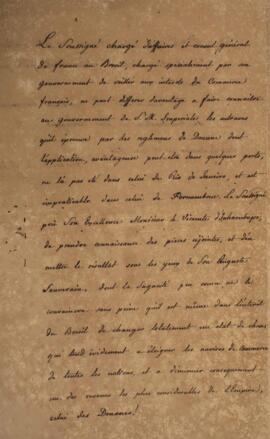 Le Soussigné chargé d'affaires et consul général
de france au Bresil, chargé spécialement par son
gouvernement de veiller aux interets du Commerce
français, ne peut differer davantage à faire connaitre
au gouvernement de S. M. Imperiale, les entraves
qu'il éprouve par les reglemens de Douane dont
l'application, avantageuse peut-etre dans quelques ports,
ne l'a pas été dans celui de Rio de Janeiro, et est
impraticable dans celui de Pernambuco. Le Soussigné
prie Son Excellence Monsieur le Vicomte d'Inhambupe,
de prendre connaissance des pieces cijointes, et d'en
mettre le résultat sous les yeux de Son Auguste
Souverain, dont la Sagacité peu commune le
convaincra sans peine qu'il est même dans l'intérêt
du Bresil de changer totalement un état de choses
qui tend évidemment à éloigner les navires de commerce
de toutes les nations, et à diminuer conséquemment
un des revenus les plus considerables de l'Empire,
celui des Douanes.